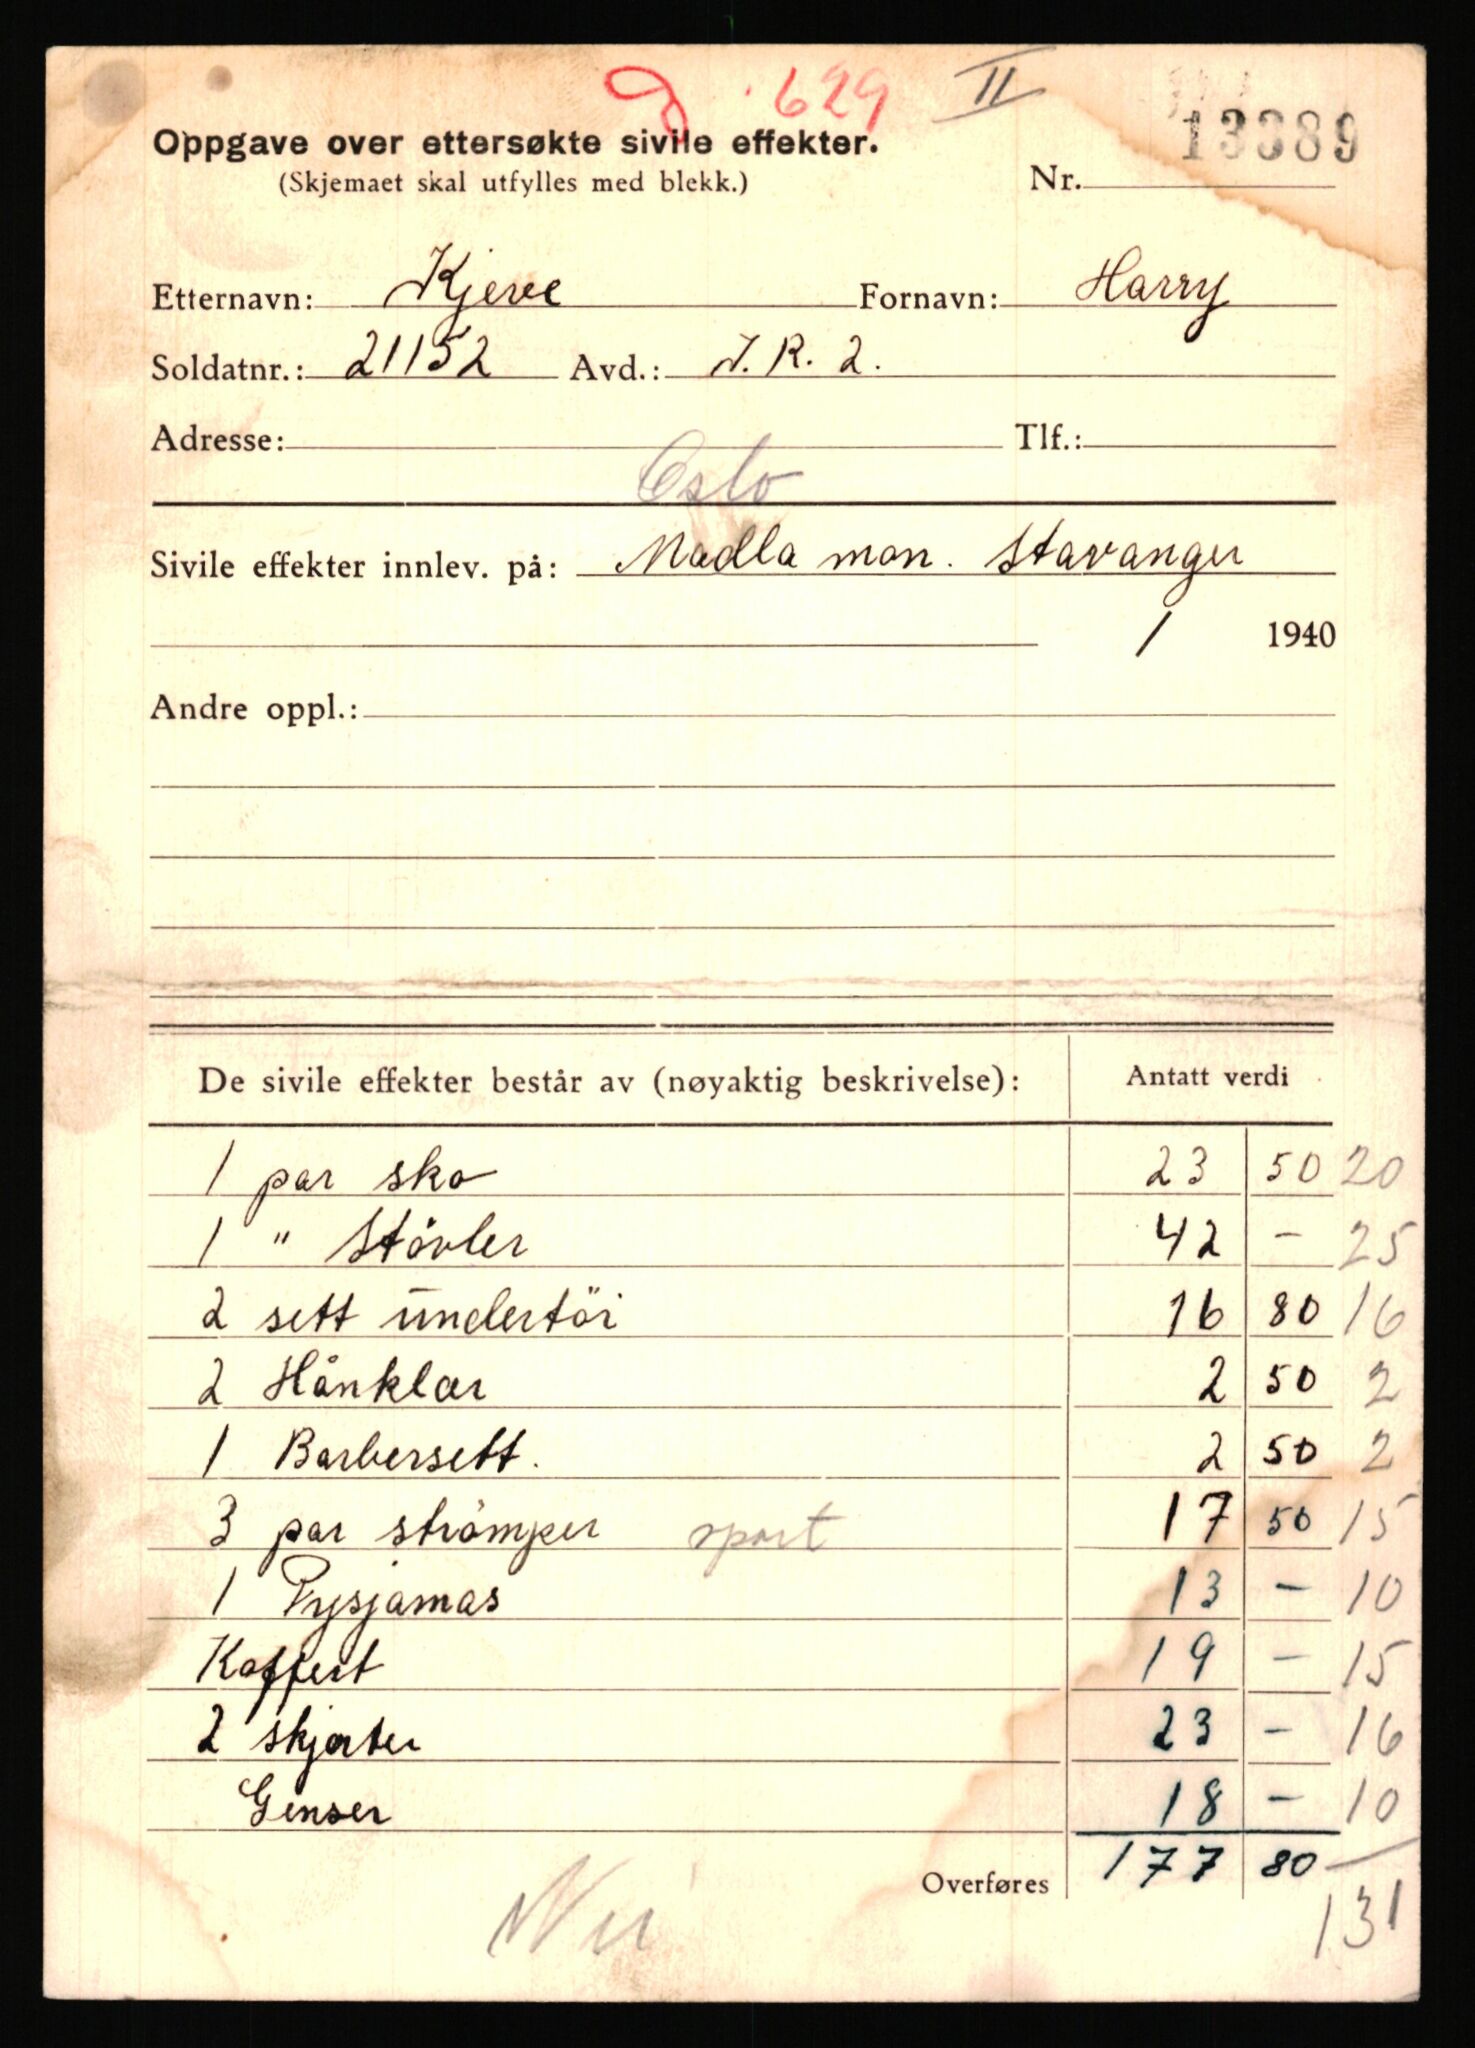 629 II
13389
Oppgave over ettersøkte sivile effekter.
(Skjemaet skal utfylles med blekk.) Nr.
Etternavn: Kjeve Fornavn: Harry
Soldatnr.: 21152 Avd.: J.R. 2.
Adresse: Tlf.:
Oslo
Sivile effekter innlev. på: Madla mon. Stavanger
/ 1940
Andre oppl.:
De sivile effekter består av (nøyaktig beskrivelse): Antatt verdi
1 par sko 23 50 20
1 " Støvler 42 - 25
2 sett undertöi 16 80 16
2 Hånklær 2 50 2
1 Barbersett. 2 50 2
3 par strömper sport 17 50 15
1 Pysjamas 13 - 10
Koffert 19 - 15
2 skjorter 23 - 16
Genser 18 - 10
Overføres 177 80
131